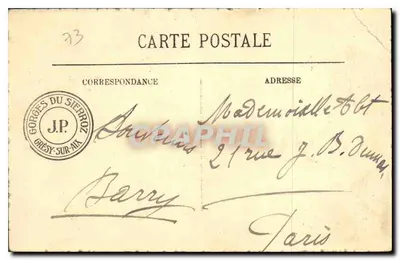 73
CARTE POSTALE
CORRESPONDANCE
ADRESSE
GORGES DU SIERROZ
J.P.
GRÉSY-SUR-AIX
Souvenirs
Barry
Mademoiselle Abt
21 rue J. B. Dumas
Paris
CPAPHIL